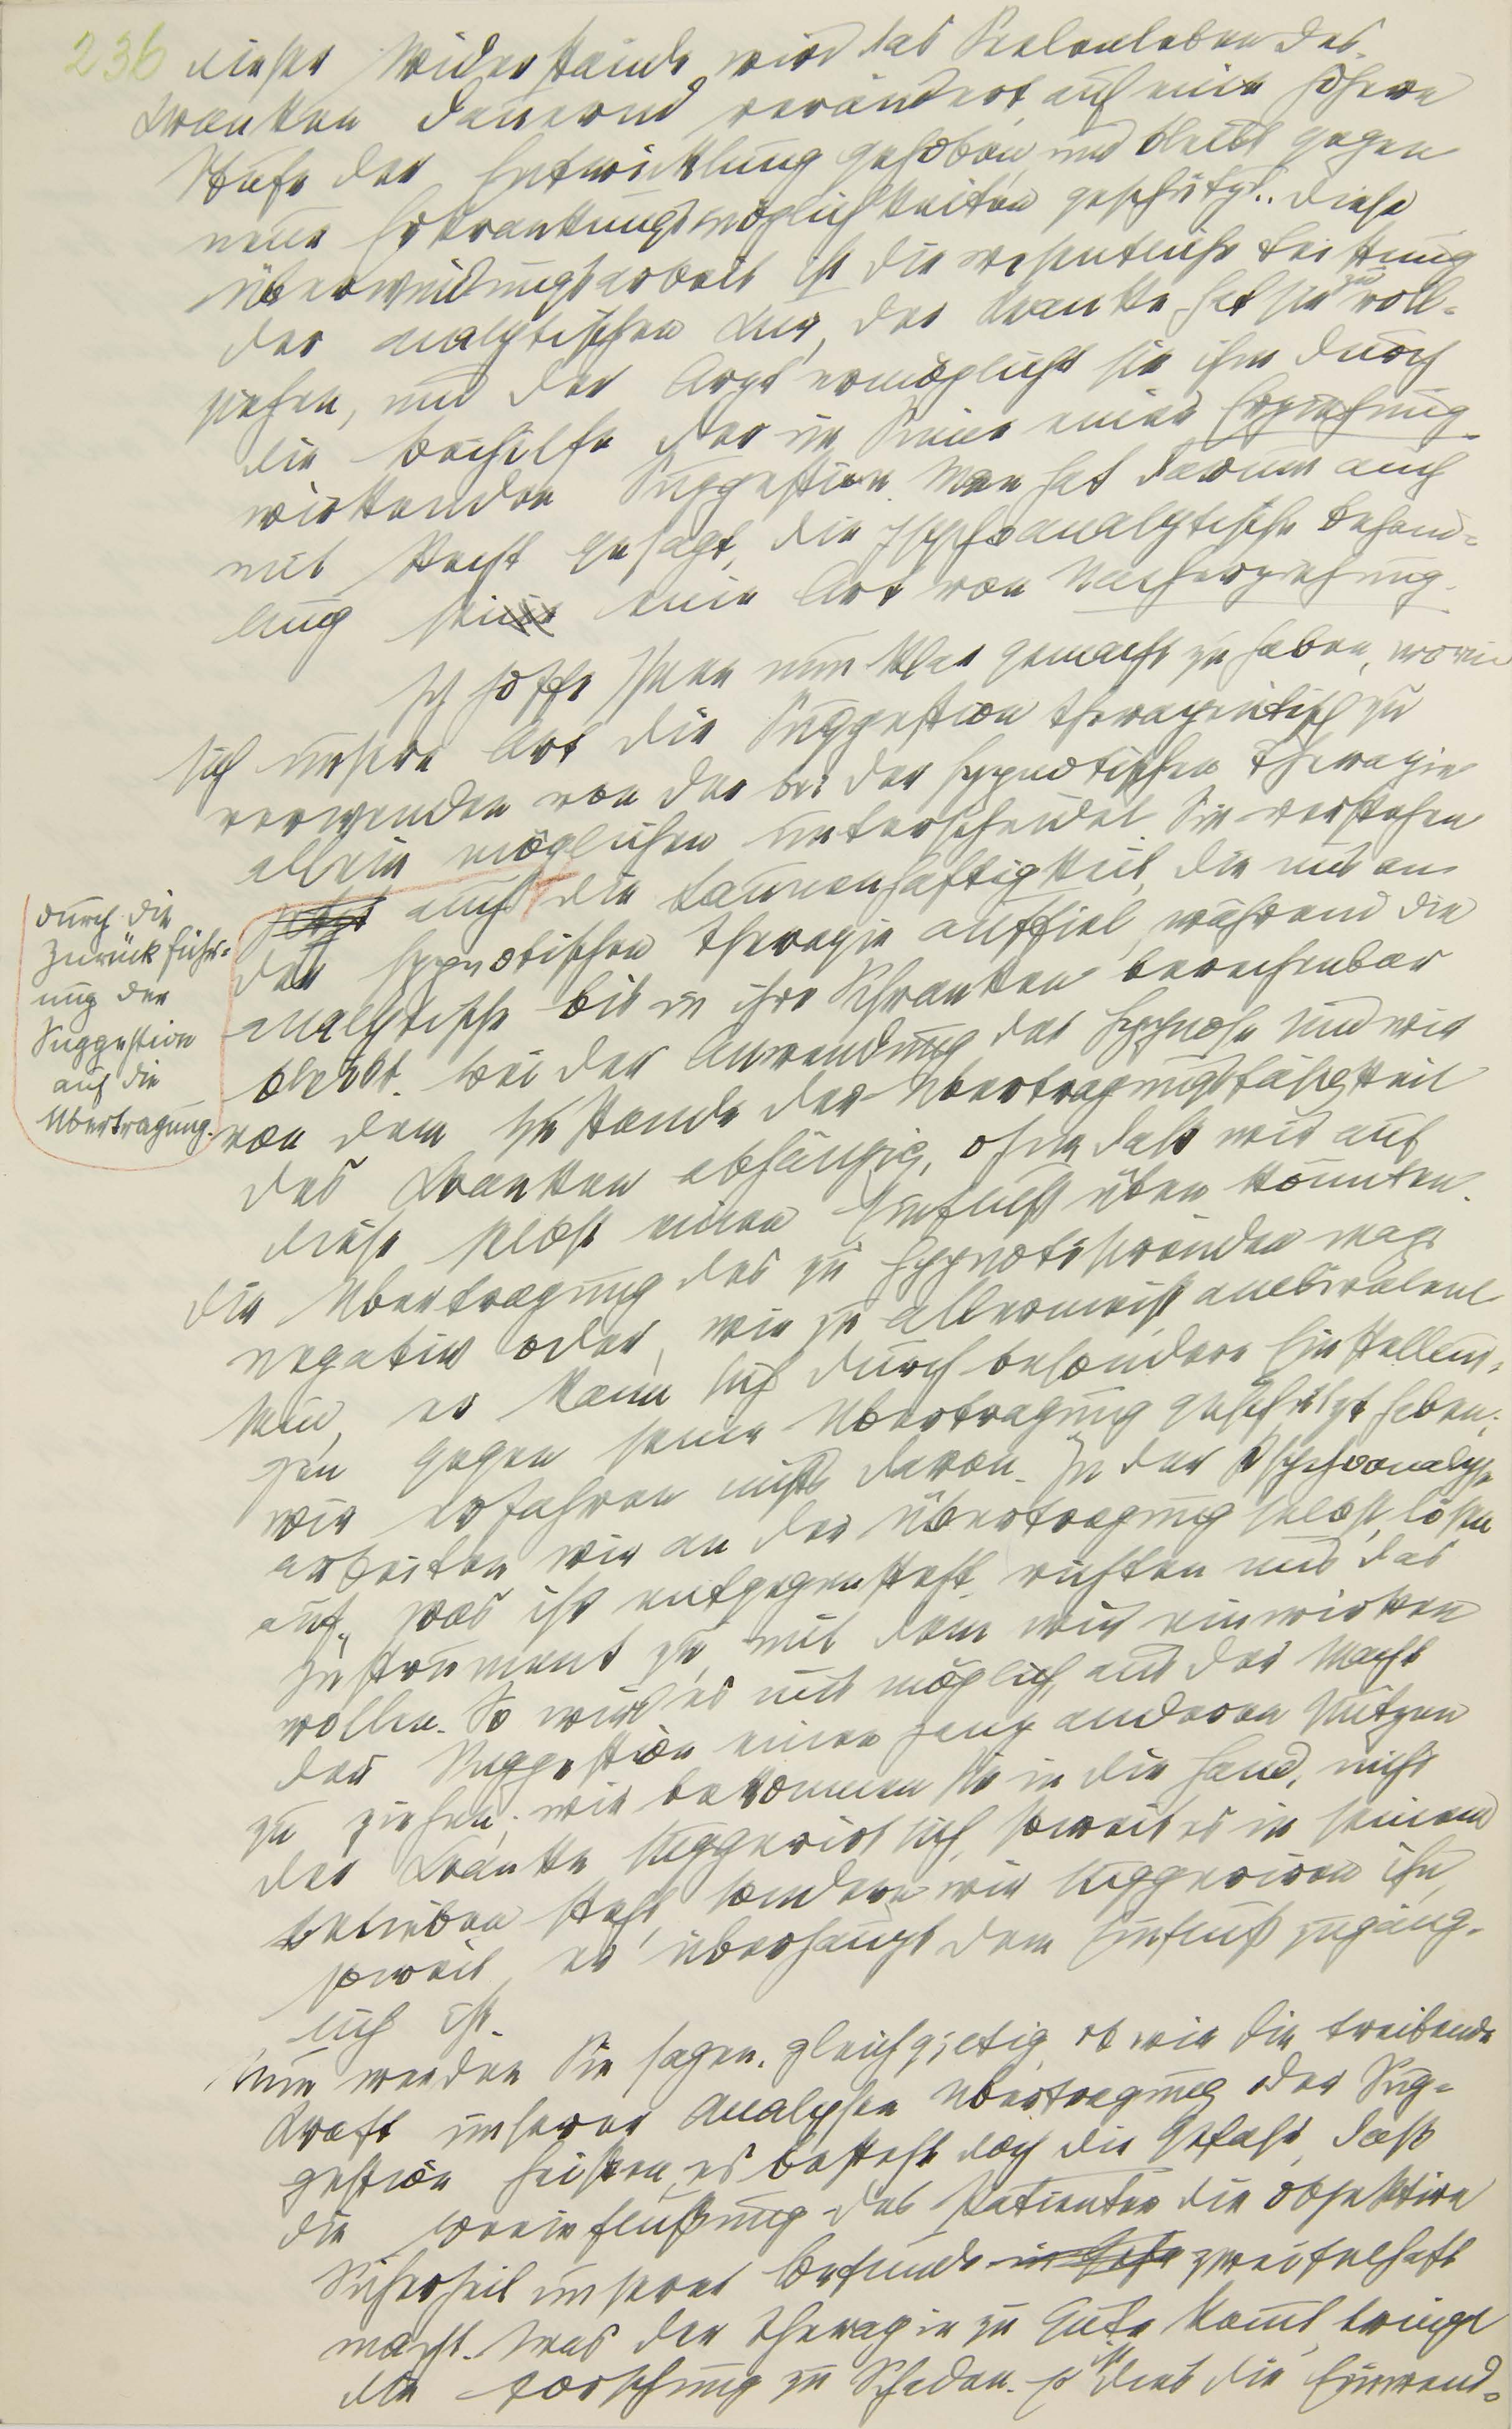 236
dieser Widerstände wird das Seelenleben des
Kranken dauernd verändert, auf eine höhere
Stufe der Entwicklung gehoben und bleibt gegen
neue Erkrankungsmöglichkeiten geschützt. Diese
Überwindungsarbeit ist die wesentliche Leistung
der analytischen Kur, der Kranke hat sie zu voll-
ziehen, und der Arzt ermöglicht sie ihm durch
die Beihilfe der im Sinne einer Erziehung
wirkenden Suggestion. Man hat darum auch
mit Recht gesagt, die psychoanalytische Behand-
lung sei eine Art von Nacherziehung.
Ich hoffe Ihnen nun klar gemacht zu haben, worin
sich unsere Art die Suggestion therapeutisch zu
verwenden von der bei der hypnotischen Therapie
allein möglichen unterscheidet. Sie verstehen
jetzt auch die Launenhaftigkeit, die uns an
der hypnotischen Therapie auffiel, während die
analytische bis in ihre Schranken berechenbar
bleibt. Bei der Anwendung der Hypnose sind wir
von dem Zustande der Übertragungsfähigkeit
des Kranken abhängig, ohne daß wir auf
diese selbst einen Einfluß üben könnten.
Die Übertragung des zu Hypnotisierenden mag
negativ oder, wie zu allermeist, ambivalent
sein, er kann sich durch besondere Einstellun-
gen gegen seine Übertragung geschützt haben;
wir erfahren nichts davon. In der Psychoanalyse
arbeiten wir an der Übertragung selbst, lösen
auf, was ihr entgegensteht, richten uns das
Instrument zu, mit dem wir einwirken
wollen. So wird es uns möglich, aus der Macht
der Suggestion einen ganz anderen Nutzen
zu ziehen; wir bekommen sie in die Hand, nicht
der Kranke suggeriert sich, soweit es in seinem
Belieben steht, sondern wir suggerieren ihn,
soweit er überhaupt dem Einfluß zugäng-
lich ist.
Nun werden Sie sagen, gleichgiltig ob wir die treibende
Kraft unserer Analysen Übertragung oder Sug-
gestion heißen, es besteht doch die Gefahr, daß
die Beeinflußung des Patienten die objektive
Sicherheit unserer Befunde zweifelhaft
macht. Was der Therapie zu Gute kommt, bringt
die Forschung zu Schaden. Es ist dies die Einwend-
durch die
Zurückführ-
ung der
Suggestion
auf die
Übertragung.